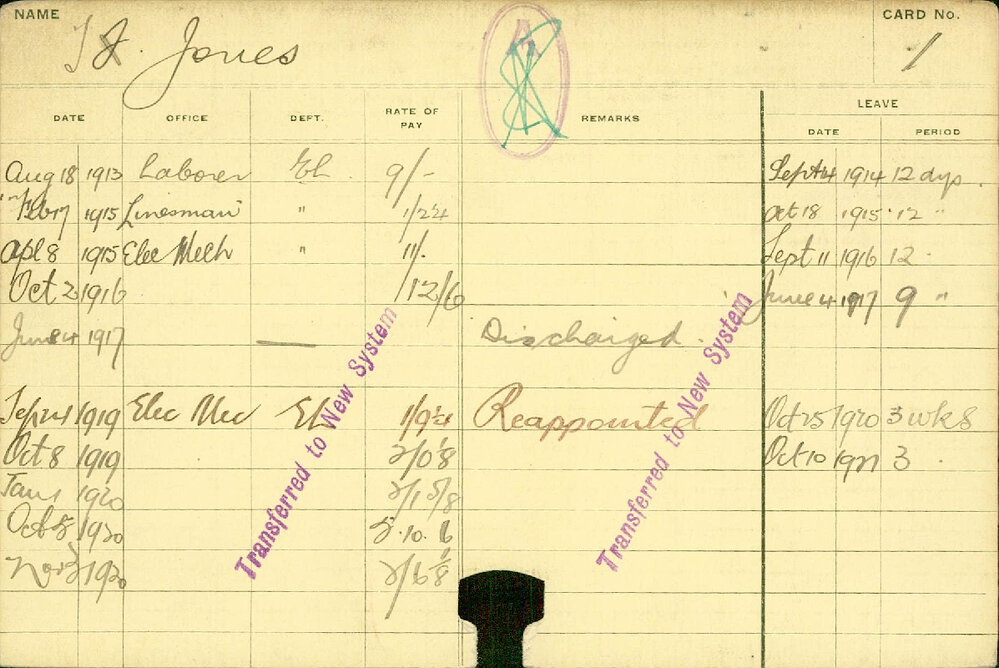 NAME CARD No.
J. Jones 1
DATE OFFICE DEPT. RATE OF PAY REMARKS LEAVE
DATE PERIOD
Aug 18 1913 Laborer El. 9/- Sept 14 1914 12 dys.
Feb 17 1915 Linesman " 1/2¼ Oct 18 1915 12 "
Apl 8 1915 Elec Mech " 11/. Sept 11 1916 12
Oct 2 1916 12/6 June 4 1917 9 "
June 4 1917 — Discharged.
Sep 24 1919 Elec Mec El 1/9¼ Reappointed Oct 25 1920 3 wks
Oct 8 1919 2/0⅛ Oct 10 1921 3
Jan 1 1920 2/1⅝
Oct 8 1920
Nov 1920 2/6⅛
Transferred to New System
Transferred to New System